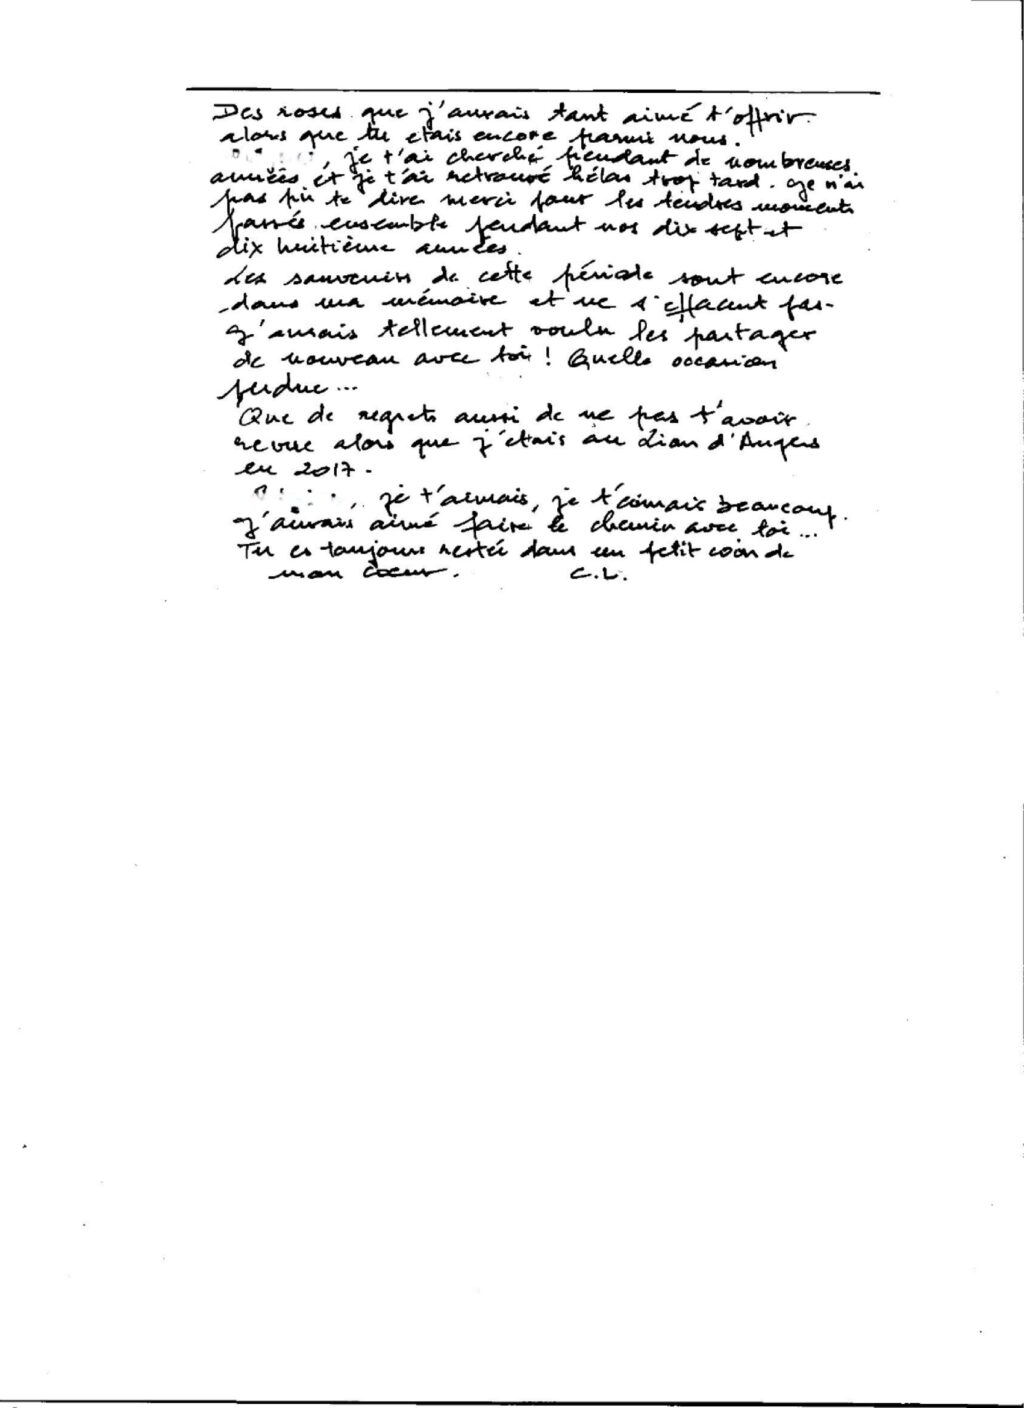 Des roses que j'aurais tant aimé t'offrir
alors que tu etais encore parmi nous.
, je t'ai cherché pendant de nombreuses
années et je t'ai retrouvé hélas trop tard. Je n'ai
pas pû te dire merci pour les tendres moments
passés ensemble pendant nos dix sept et
dix huitième années.
Les souvenirs de cette période sont encore
dans ma mémoire et ne s'effacent pas.
J'aurais tellement voulu les partager
de nouveau avec toi ! Quelle occasion
perdue...
Que de regrets aussi de ne pas t'avoir
revue alors que j'étais au Lion d'Angers
en 2017.
, je t'aimais, je t'aimais beaucoup.
J'aurais aimé faire le chemin avec toi...
Tu es toujours restée dans un petit coin de
mon coeur. C.L.